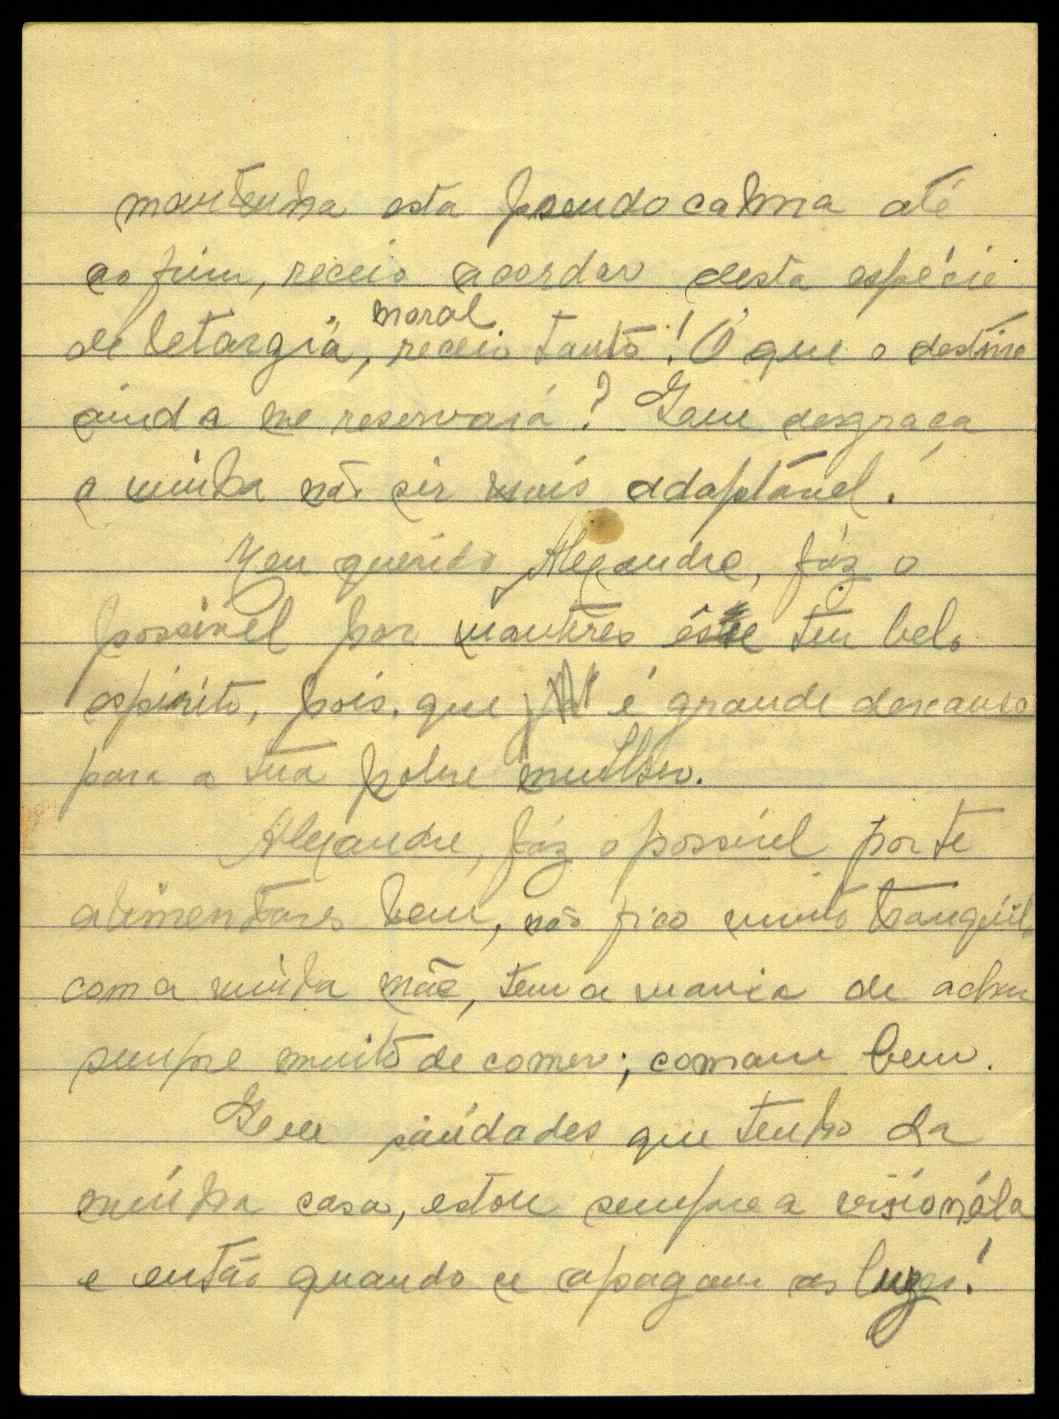 mantenha esta pseudo calma até
ao fim, receio acordar desta espécie
de letargia moral, receio tanto! O que o destino
ainda me reservará? Que desgraça
a minha não ser mais adaptável.
Meu querido Alexandre, fáz o
possível por mantêres êste teu belo
espírito, pois, que é grande descanso
para a tua pobre mulher.
Alexandre, fáz o possível por te
alimentares bem, não fico muito tranquíla
com a minha mãe, tem a mania de achar
sempre muito de comer; comam bem.
Que saúdades que tenho da
minha casa, estou sempre a visionála
e então quando se apagam as luzes!